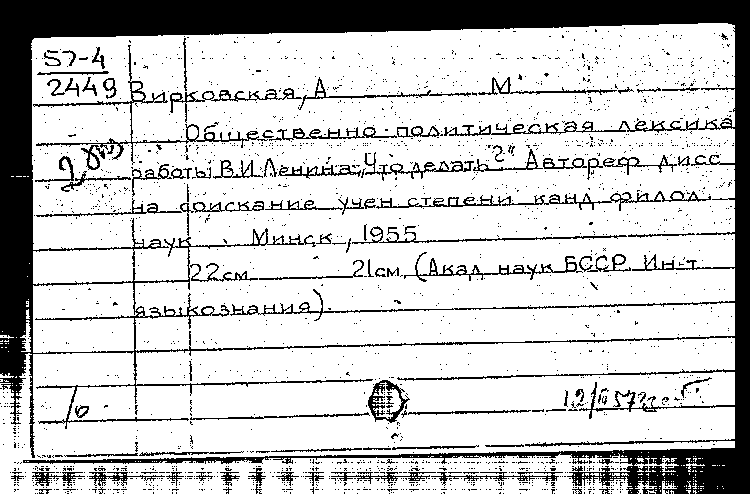 57-4
2449
Вирковская, А М
Общественно-политическая лексика
работы В.И.Ленина "Что делать?". Автореф дисс
на соискание учен степени канд филол.
наук. Минск, 1955
22см 21см. (Акад наук БССР. Ин-т
языкознания).